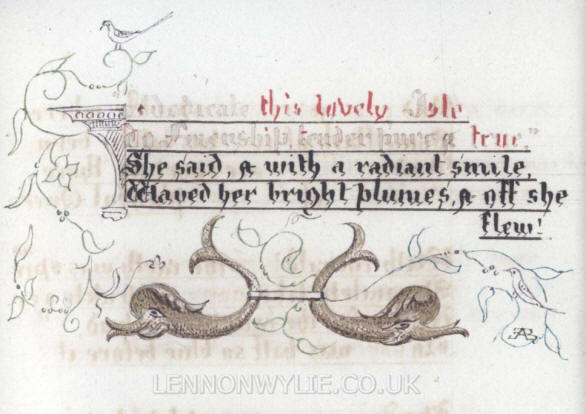 dedicate this lovely Isle
tender pure & true."
She said, & with a radiant smile,
Waved her bright plumes, & off she
flew!
LENNONWYLIE.CO.UK